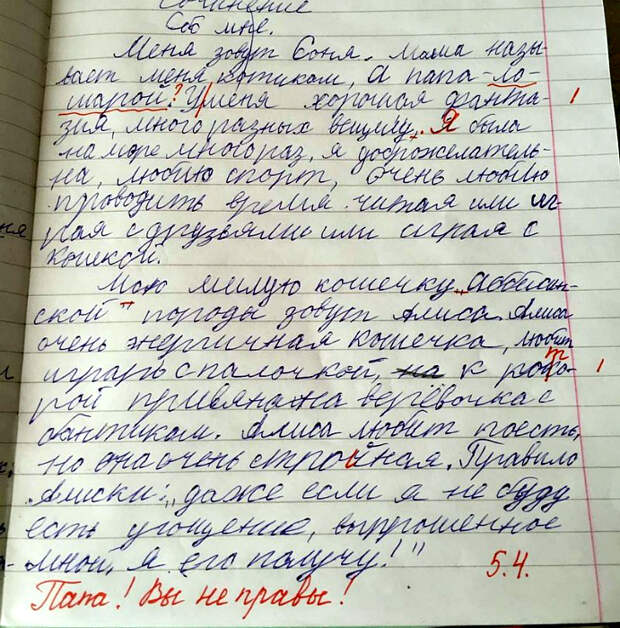 Сочинение
Соб мне.
Меня зовут Соня. Мама назы-
вает меня котиком, а папа-ло-
шарой? У меня хорошая фанта- 1
зия, много разных вещичу. Я была
на море много раз, я доброжелатель-
на, люблю спорт, очень люблю
проводить время читая или иг-
рая с друзьями или играя с
кошкой.
Мою милую кошечку "Аббеин-
ской" породы зовут Алиса. Алиса
очень энергичная кошечка, любит
играть с палочкой, на к рото- 1
рой привянажа верёвочка с
бантиком. Алиса любит поесть,
но она очень стройная. Правило
Алиски: "даже если я не буду
есть угощение, выпрошенное
мной, я его получу!"
5.4.
Папа! Вы не правы!